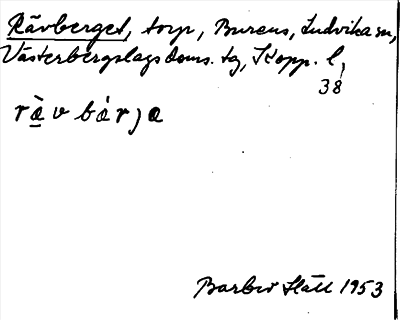 Rävberget, torp, Burens, Ludvika sn,
Västerbergslags doms. tg, Kopp. l,
38
rä̀v bárja
Barbro Slätt 1953